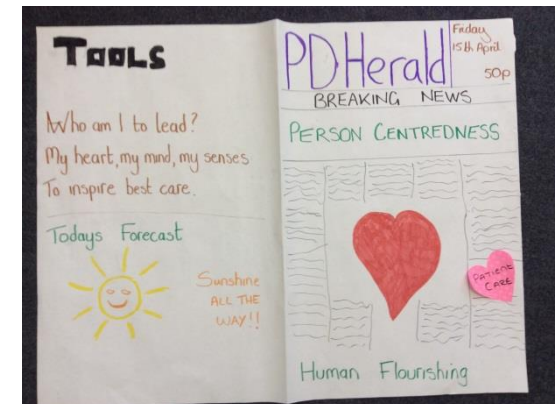 TOOLS
Who am I to lead?
My heart, my mind, my senses
To inspire best care.
Todays Forecast
Sunshine
ALL THE
WAY!!
PD Herald
Friday
15th April
50p
BREAKING NEWS
PERSON CENTREDNESS
PATIENT
CARE
Human Flourishing